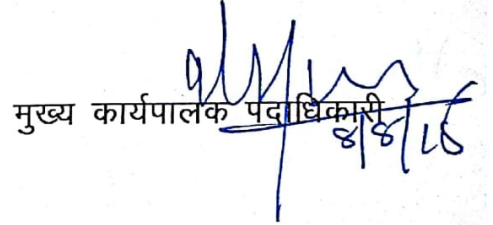 मुख्य कार्यपालक पदाधिकारी
8/8/16